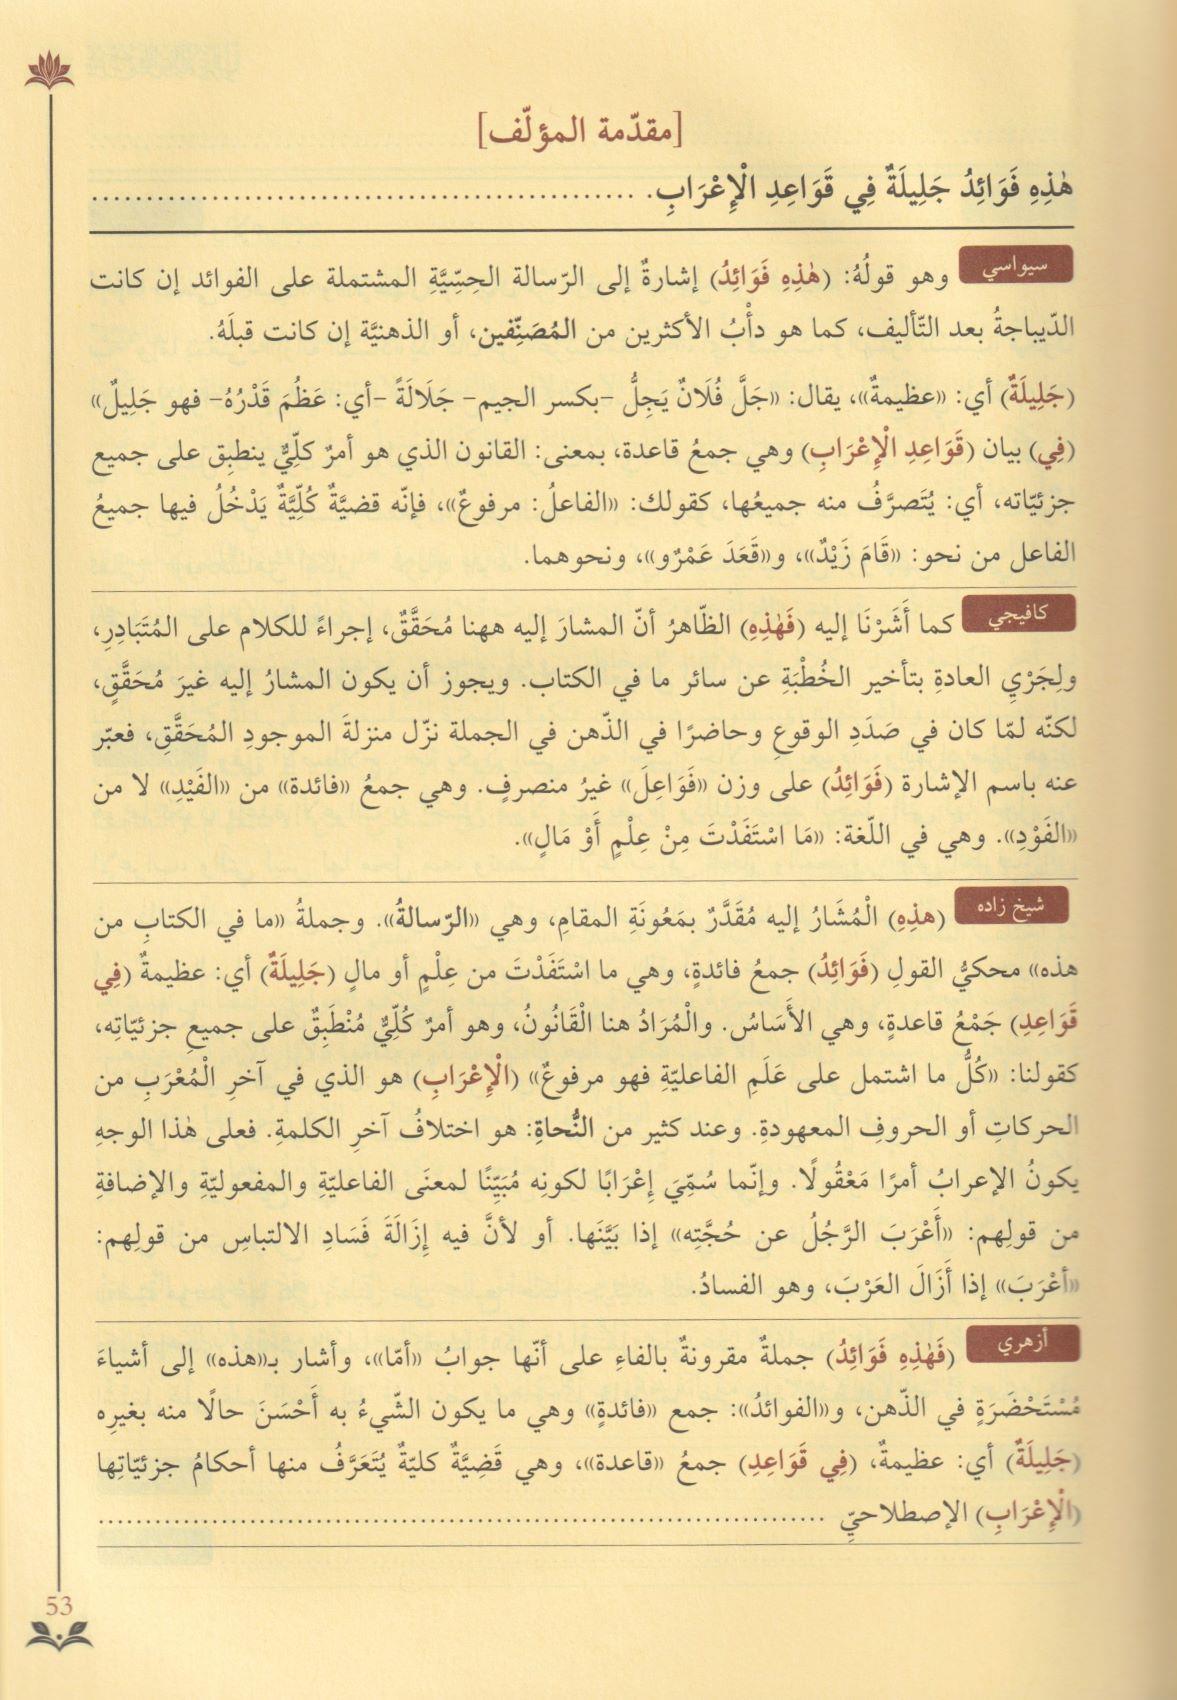 [مقدّمة المؤلّف]
هٰذِهِ فَوَائِدُ جَلِيلَةٌ فِي قَوَاعِدِ الْإِعْرَابِ. ................................................
سيواسي وهو قولُهُ: (هٰذِهِ فَوَائِدُ) إشارةٌ إلى الرّسالة الحِسِّيَّةِ المشتملة على الفوائد إن كانت
الدّيباجةُ بعد التّأليف، كما هو دأْبُ الأكثرين من المُصَنِّفين، أو الذهنيَّة إن كانت قبلَهُ.
(جَلِيلَةٌ) أي: «عظيمةٌ»، يقال: «جَلَّ فُلَانٌ يَجِلُّ -بكسر الجيم- جَلَالَةً -أي: عَظُمَ قَدْرُهُ- فهو جَلِيلٌ»
(فِي) بيان (قَوَاعِدِ الْإِعْرَابِ) وهي جمعُ قاعدة، بمعنى: القانون الذي هو أمرٌ كلّيٌّ ينطبِق على جميع
جزئيّاته، أي: يُتَصرَّفُ منه جميعُها، كقولك: «الفاعلُ: مرفوعٌ»، فإنّه قضيَّةٌ كُلِّيَّةٌ يَدْخُلُ فيها جميعُ
الفاعل من نحو: «قَامَ زَيْدٌ»، و«قَعَدَ عَمْرٌو»، ونحوهما.
كافيجي كما أَشَرْنَا إليه (فَهٰذِهِ) الظّاهرُ أنّ المشارَ إليه ههنا مُحَقَّقٌ، إجراءً للكلام على المُتَبَادِرِ،
ولِجَرْيِ العادةِ بتأخير الخُطْبَةِ عن سائر ما في الكتاب. ويجوز أن يكون المشارُ إليه غيرَ مُحَقَّقٍ،
لكنّه لمّا كان في صَدَدِ الوقوعِ وحاضرًا في الذّهن في الجملة نزّل منزلةَ الموجودِ المُحَقَّقِ، فعبّر
عنه باسم الإشارة (فَوَائِدُ) على وزن «فَوَاعِلَ» غيرُ منصرفٍ. وهي جمعُ «فائدة» من «الفَيْدِ» لا من
«الفَوْدِ». وهي في اللّغة: «مَا اسْتَفَدْتَ مِنْ عِلْمٍ أَوْ مَالٍ».
شيخ زاده (هذِهِ) الْمُشَارُ إليه مُقَدَّرٌ بمَعُونَةِ المقامِ، وهي «الرّسالةُ». وجملةُ «ما في الكتابِ من
هذه» محكيُّ القولِ (فَوَائِدُ) جمعُ فائدةٍ، وهي ما اسْتَفَدْتَ من عِلْمٍ أو مالٍ (جَلِيلَةٌ) أي: عظيمةٌ (فِي
قَوَاعِدِ) جَمْعُ قاعدةٍ، وهي الأَسَاسُ. والْمُرَادُ هنا الْقَانُونُ، وهو أمرٌ كُلِّيٌّ مُنْطَبِقٌ على جميعِ جزئيّاتِه،
كقولنا: «كُلُّ ما اشتمل على عَلَمِ الفاعليّةِ فهو مرفوعٌ» (الْإِعْرَابِ) هو الذي في آخرِ الْمُعْرَبِ من
الحركاتِ أو الحروفِ المعهودةِ. وعند كثير من النُّحاةِ: هو اختلافُ آخرِ الكلمةِ. فعلى هٰذا الوجهِ
يكونُ الإعرابُ أمرًا مَعْقُولًا. وإنّما سُمِّيَ إِعْرَابًا لكونِه مُبَيِّنًا لمعنَى الفاعليّةِ والمفعوليّةِ والإضافةِ
من قولِهم: «أَعْرَبَ الرَّجُلُ عن حُجَّتِه» إذا بَيَّنَها. أو لأنَّ فيه إِزَالَةَ فَسَادِ الالتباسِ من قولِهم:
«أعْرَبَ» إذا أَزَالَ العَرْبَ، وهو الفسادُ.
أزهري (فَهٰذِهِ فَوَائِدُ) جملةٌ مقرونةٌ بالفاءِ على أنّها جوابُ «أمّا»، وأشار بـ«هذه» إلى أشياءَ
مُسْتَحْضَرَةٍ في الذّهن، و«الفوائدُ»: جمع «فائدةٍ» وهي ما يكون الشّيءُ به أَحْسَنَ حالًا منه بغيرِه
(جَلِيلَةٌ) أي: عظيمةٌ، (فِي قَوَاعِدِ) جمعُ «قاعدة»، وهي قَضِيَّةٌ كليّةٌ يُتَعَرَّفُ منها أحكامُ جزئيّاتِها
(الْإِعْرَابِ) الإصطلاحيِّ ................................................................
53